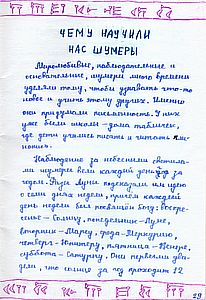 ЧЕМУ НАУЧИЛИ
НАС ШУМЕРЫ
Миролюбивые, наблюдательные и
основательные, шумеры много времени
уделяли тому, чтобы узнавать что-то
новое и учить этому других. Именно
они придумали письменность. У них
уже были школы - дома табличек,
где дети учились писать и читать
Наблюдение за небесными светила-
ми шумеры вели каждый день за
годом. Луны подсказали им идею
о семи днях недели, причём каждый
день недели был посвящён богу: воскре-
сенье - Солнцу, понедельник - Луне,
вторник - Марсу, среда - Меркурию,
четверг - Юпитеру, пятница - Венере,
суббота - Сатурну. Они первыми уви-
дели, что солнце за год проходит 12
29